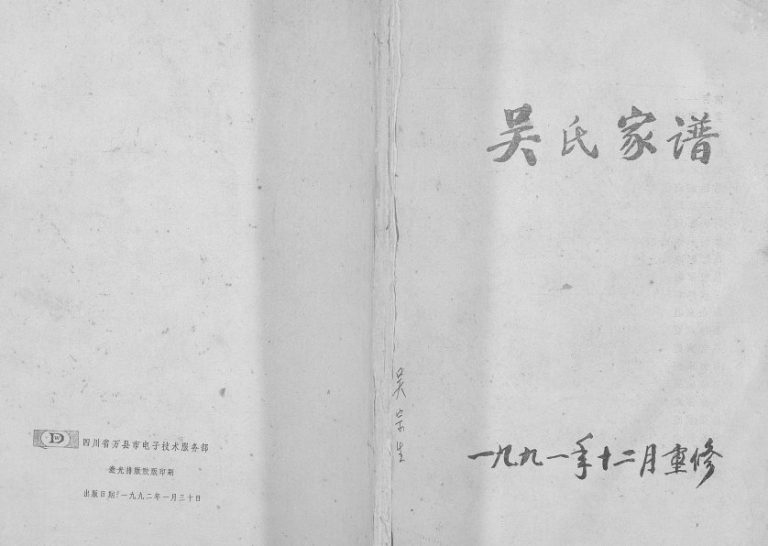 吴氏家谱
一九九一年十二月重修
吴宗生
四川省万县市电子技术服务部
激光排版胶版印刷
出版日期：一九九二年一月三十日